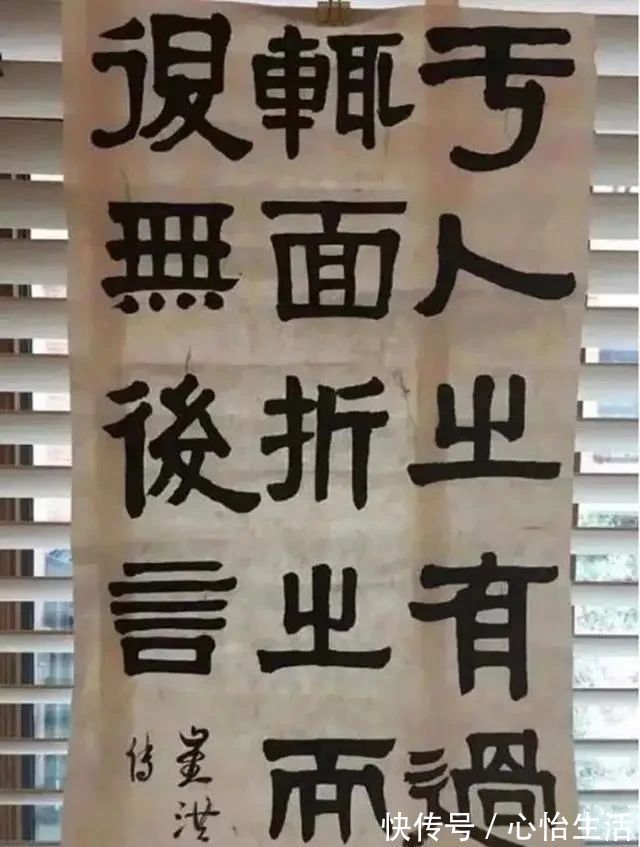 于人之有過
輒面折之而
退無後言
崔洪
傳
快传号 / 心怡生活